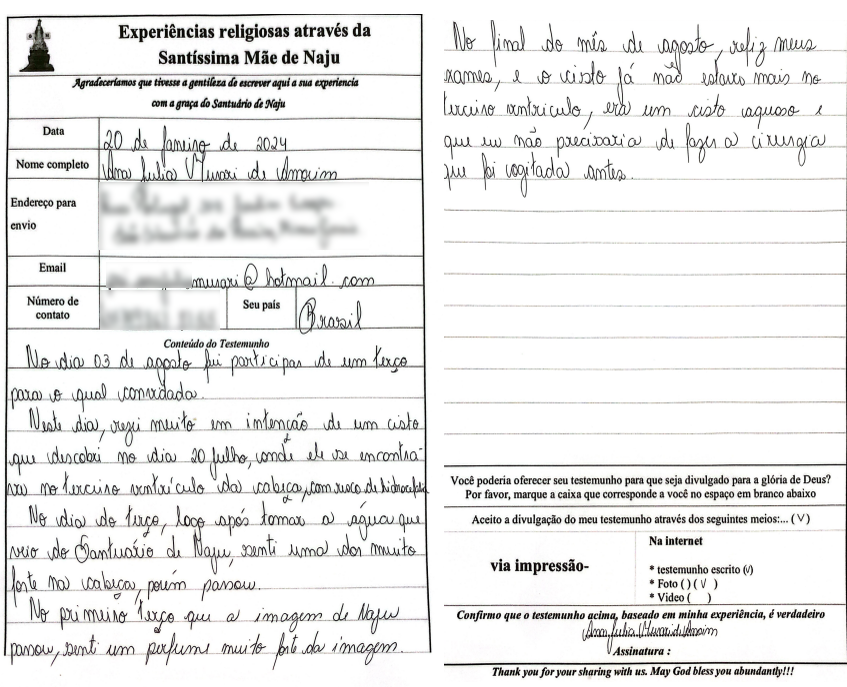 Experiências religiosas através da
Santíssima Mãe de Naju
Agradeceríamos que tivesse a gentileza de escrever aqui a sua experiencia
com a graça do Santuário de Naju
Data
20 de Janeiro de 2024
Nome completo
Ana Julia Munari de Amorim
Endereço para
envio
Email
munari@hotmail.com
Número de
contato
Seu país
Brasil
Conteúdo do Testemunho
No dia 03 de agosto fui participar de um terço
para o qual convidada.
Neste dia, rezei muito em intenção de um cisto
que descobri no dia 20 julho, onde ele se encontra-
va no terceiro ventrículo da cabeça, com risco de hidrocefalia
No dia do terço, logo após tomar a água que
veio do Santuário de Naju, senti uma dor muito
forte na cabeça, porém passou.
No primeiro terço que a imagem de Naju
passou, senti um perfume muito forte da imagem.
No final do mês de agosto, refiz meus
exames, e o cisto já não estava mais no
terceiro ventriculo, era um cisto aquoso e
que eu não precisaria de fazer a cirurgia
que foi cogitada antes.
Você poderia oferecer seu testemunho para que seja divulgado para a glória de Deus?
Por favor, marque a caixa que corresponde a você no espaço em branco abaixo
Aceito a divulgação do meu testemunho através dos seguintes meios:... (V)
via impressão-
Na internet
* testemunho escrito (v)
* Foto ( ) ( V )
* Video ( )
Confirmo que o testemunho acima, baseado em minha experiência, é verdadeiro
Ana Julia Munari de Amorim
Assinatura :
Thank you for your sharing with us. May God bless you abundantly!!!